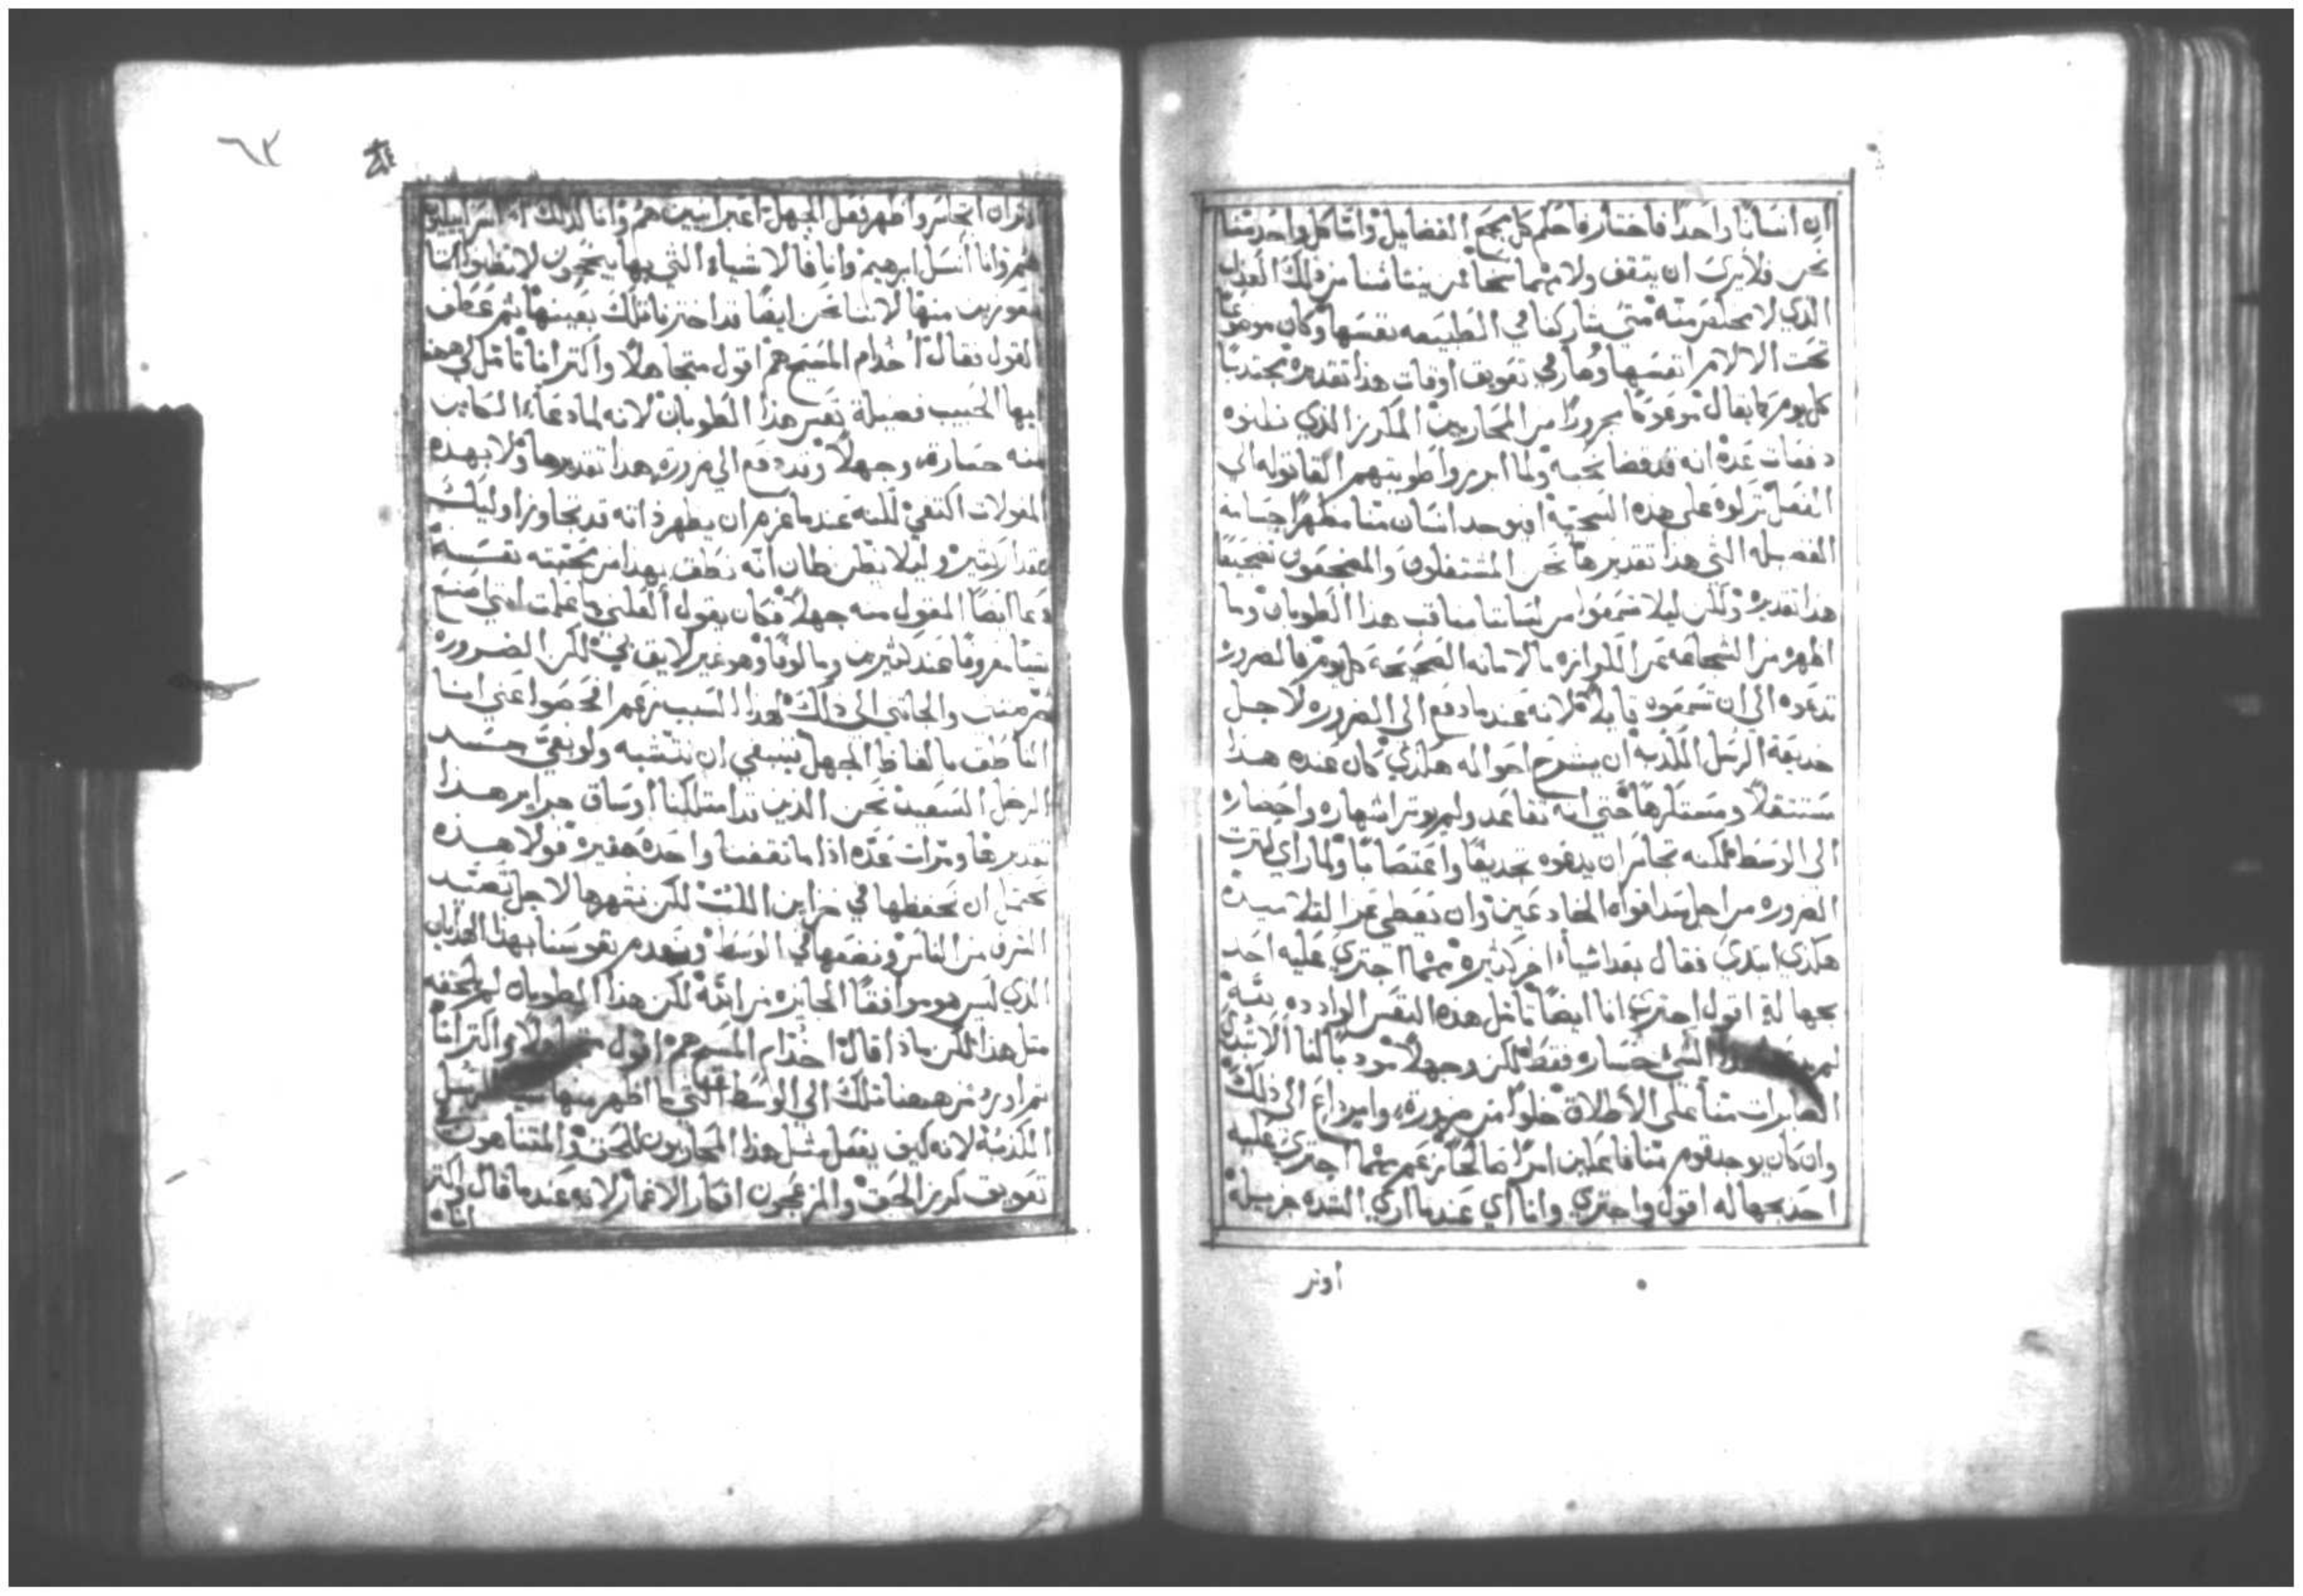 ان انسانًا واحدًا فاختاره فاحكم كل بجمع الفضايل وانما كل واحد مننا
نحن فلا يترك ان يتقف ولا مهما نجا من بيننا مننا من ذلك العدل
الذي لا يحتقر منه متي شاركنا في الطبيعه نفسها وكان موضوعًا
تحت الالام نفسها وصار في تعويق اوقات هذا تقديره مجتدبًا
كل يوم كما يقال موعوكًا مجرورًا من المحاربين المكرز الذي نظنوه
دفعات عده انه قد قضا نحبه ولما ابرروا طويتهم القاتوله الي
الفعل تركوه علي هذه السجيه اين يوجد انسان مننا مظهرًا جسامة
الفضيله التي هذا تقديرها نحن المشتغلون والمضجعون تضجيعًا
هذا تقديره ولكن ليلا تسمعوا من لساننا مناقب هذا الطوبان وما
اظهره من الشجاعه عن الكرازه بالامانه الصحيحه كل يوم فالضروره
تدعوه الي ان تسمعون قايله لانه عندما دفع الي الضروره لاجل
خديعة الرسل الكذبه ان يشرح احواله هكذي كان عنده هذا
مستثقلاً ومستكرهًا حتي انه تقاعد ولم يوتر اشهاره واحضاره
الي الوسط لكنه تجاسر ان يدعوه تجديفًا واغتصابًا ولما راي كترت
الضروره من اجل سد افواه الخادعين وان تغطي عن التلاميده
هكذي ابتدي فقال بعد اشيأ اخر كثيره مهما اجتري عليه احد
بجهالةٍ اقول اجتري انا ايضًا تامل هذه النفس الوادده بته
لم هذا الشئ خساره فقط لكن وجهلاً مودبًا لنا الا نبدي
الصابرات مننا علي الاطلاق خلوًا من ضرورة وايرداع الي ذلك
وان كان يوجد قوم مننا فاعلين امرًا صالحًا زعم مهما اجتري عليه
احد بجهاله اقول واجتري وانا اي عندما اري الشده جزيله
اوتر
٦٢
اوتر ان اتجاسر واظهر فعل الجهل اعبرانيين هم وانا كذلك ااسراييليون
هم وانا أنسل ابرهيم وانا فالاشياء التي بها يبتهجون لا تظنوا اننا
معوزين منها لاننا نحن ايضًا قد احترنا تلك بعينها ثم عطف
القول فقال أخدام المسيح هم اقول متجاهلاً واكتر انا تامل لي ههنا
ايها الحبيب فضيلة نفس هذا الطوبان لانه لما دعاء الكاين
منه خسارة وجهلاً وقد دفع الي ضروره هذا تقديرها ولا بهذه
المقولات اكتفي لكنه عندما عزم ان يظهر ذاته قد تجاوز اوليك
بمقدار كثير وليلا يظن ظان انه نطق بهذا من محبته نفسه
دعا ايضًا المقول منه جهلاً فكان يقول العلني ما علمت انني اصنع
شيًا معروفًا عند كثيرين ومالوفًا وهو غير لايق بي لكن الضروره
والجاتني الي ذلك لهذا السبب زعم افحصوا عني انا
الناطق بالفاظ الجهل ينبغي ان نتشبه ولو بفي جسد
الرجل السعيد نحن الذين قد امتلكنا اوساق جراير هذا
تقديرها ومرات عده اذا ما تقفنا واحده حقيره فولا هذه
نحتمل ان نحفظها في خزاين اللت لكن نشهرها لاجل تصيد
الشرف من الناس ونضعها في الوسط ونعدم نفوسنا بهذا الهذيان
الذي ليس هو موافقًا الجايزه من الله لكن هذا الطوبان لم يلحقه
متل هذا لكن ماذا قال اخدام المسيح هم اقول متجاهلاً واكتر انا
ثم اورد من ههنا تلك الي الوسط التي ما اظهر منها الرسل
الكذبة لانه كيف يفعل مثل هذا المحاربون للحق والمتناهون
تعويق كرز الحق والمزعجون افكار الاغمار لانه عندما قال واكتر
انا